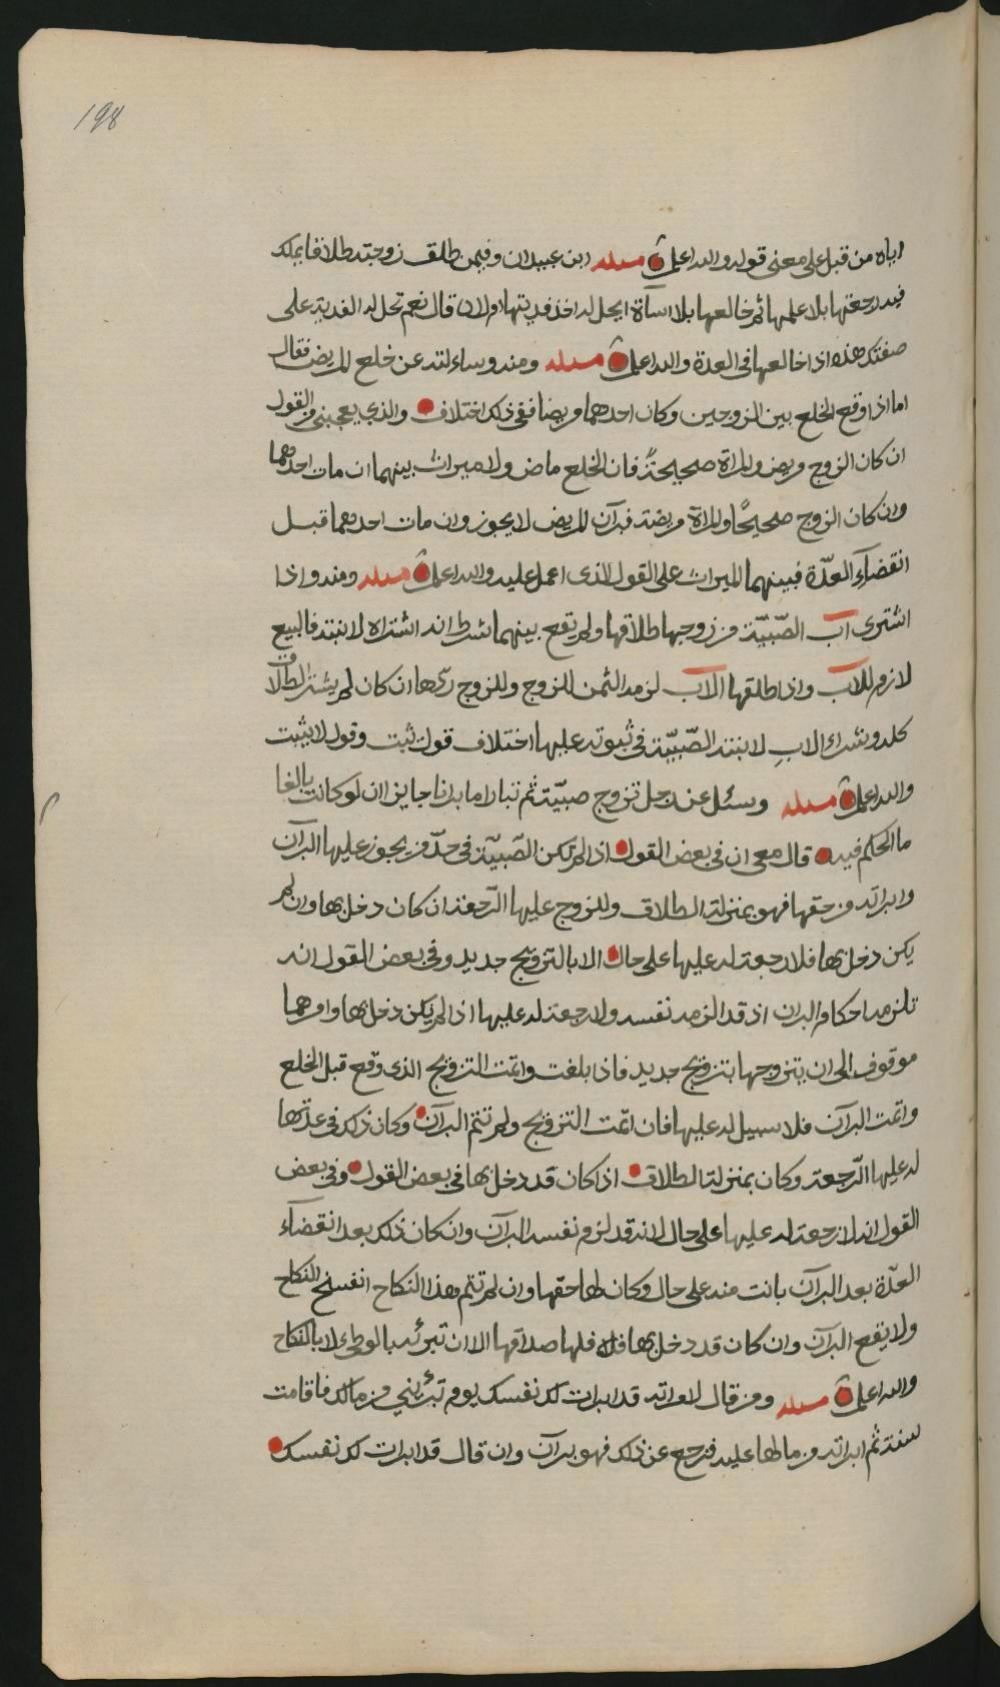 198
اياه من قبل على معنى قوله والله اعلم مسئلة ابن عبيدان وفيمن طلق زوجته طلاقا يملك
فيه رجعتها بلا علمها ثم خالعها بلا اساءة ايحل له اخذ فديتها ام لا قال نعم تحل له الفدية على
صفتك هذه اذا خالعها في العدة والله اعلم مسئلة ومنه وساءلته عن خلع المريض فقال
اما اذا وقع الخلع بين الزوجين وكان احدهما مريضا ففي ذلك اختلاف والذي يعجبني من القول
ان كان الزوج مريض والمراة صحيحة فان الخلع ماض ولا ميراث بينهما ان مات احدهما
وان كان الزوج صحيحًا والمراة مريضة فبرآن المريض لا يجوز وان مات احدهما قبل
انقضآء العدّة فبينهما الميراث على القول الذى اعمل عليه والله اعلم مسئلة ومنه واذا
اشترى اب الصّبيّة من زوجها طلاقها ولم يقع بينهما شرط انه اشتراه لابنته فالبيع
لازم للاب واذا طلقها الاب لزمه الثمن للزوج وللزوج ردّها ان كان لم يشتر الطلاق
كله وشراء الاب لابنته الصّبيّة في ثبوته عليها اختلاف قول يثبت وقول لا يثبت
والله اعلم مسئلة وسئل عن رجل تزوج صبيّة ثم تبارا ما برانا جايز ان لو كانت بالغا
ما الحكم فيه قال معي ان في بعض القول اذا لم تكن الصّبيّة في حدّ من يجوز عليها البرآن
وابراته من حقها فهو بمنزلة الطلاق وللزوج عليها الرّجعة ان كان دخل بها وان لم
يكن دخل بها فلا رجعة له عليها على حال الا بالتزويج جديد وفي بعض القول انه
تلزمه احكام البران اذ قد الزمه نفسه ولا رجعة له عليها اذا لم يكن دخل بها وامرهما
موقوف الى ان يتزوجها بتزويج جديد فاذا بلغت واتمت التزويج الذى وقع قبل الخلع
واتمت البرآن فلا سبيل له عليها فان اتمت التزويج ولم تتم البرآن وكان ذلك في عدّتها
له عليها الرّجعة وكان بمنزلة الطلاق اذا كان قد دخل بها في بعض القول وفي بعض
القول انه لا رجعة له عليها على حال لانه قد لزم نفسه البرآن وان كان ذلك بعد انقضآء
العدّة بعد البرآن بانت منه على حال وكان لها حقّها وان لم تتم هذا النكاح انفسخ النكاح
ولا يقع البرآن وان كان قد دخل بها فلها صداقها الا ان تبرئه بالوطئ لا بالنكاح
والله اعلم مسئلة ومن قال لامراته قد ابرات لك نفسك يوم تبرئيني من مالك فاقامت
سنة ثم ابراته من مالها عليه فرجع عن ذلك فهو برآن وان قال قد ابرات لك نفسك